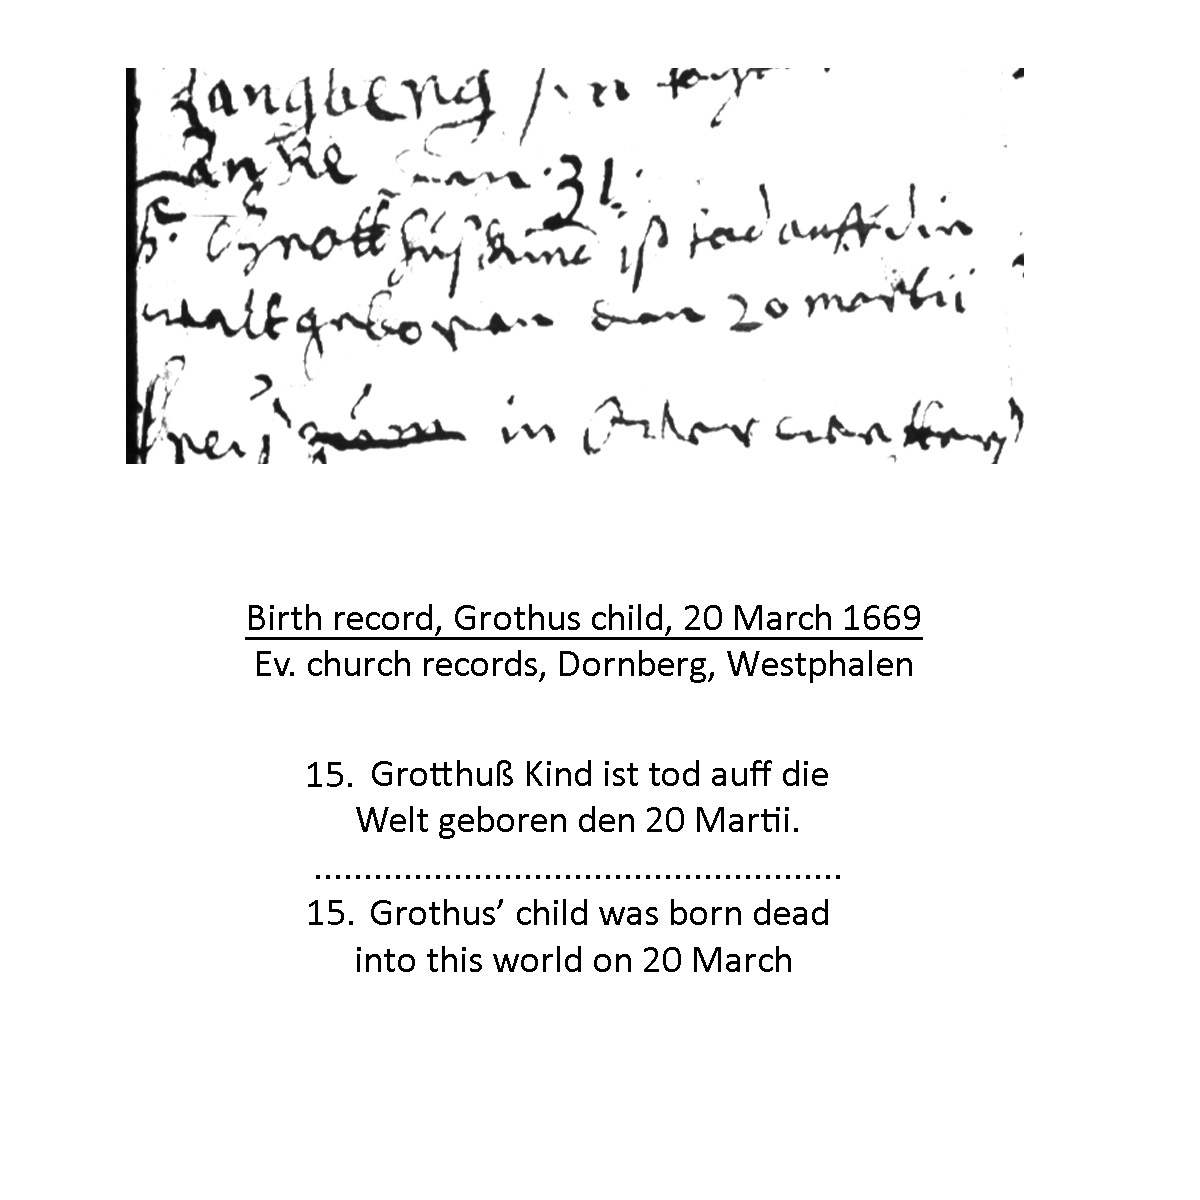 Langberg / in
Anke den 31.
5. Grotthuß Kind ist tod auff die
welt geboren den 20 martii
in
Birth record, Grothus child, 20 March 1669
Ev. church records, Dornberg, Westphalen
15. Grotthuß Kind ist tod auff die
Welt geboren den 20 Martii.
....................................................
15. Grothus’ child was born dead
into this world on 20 March